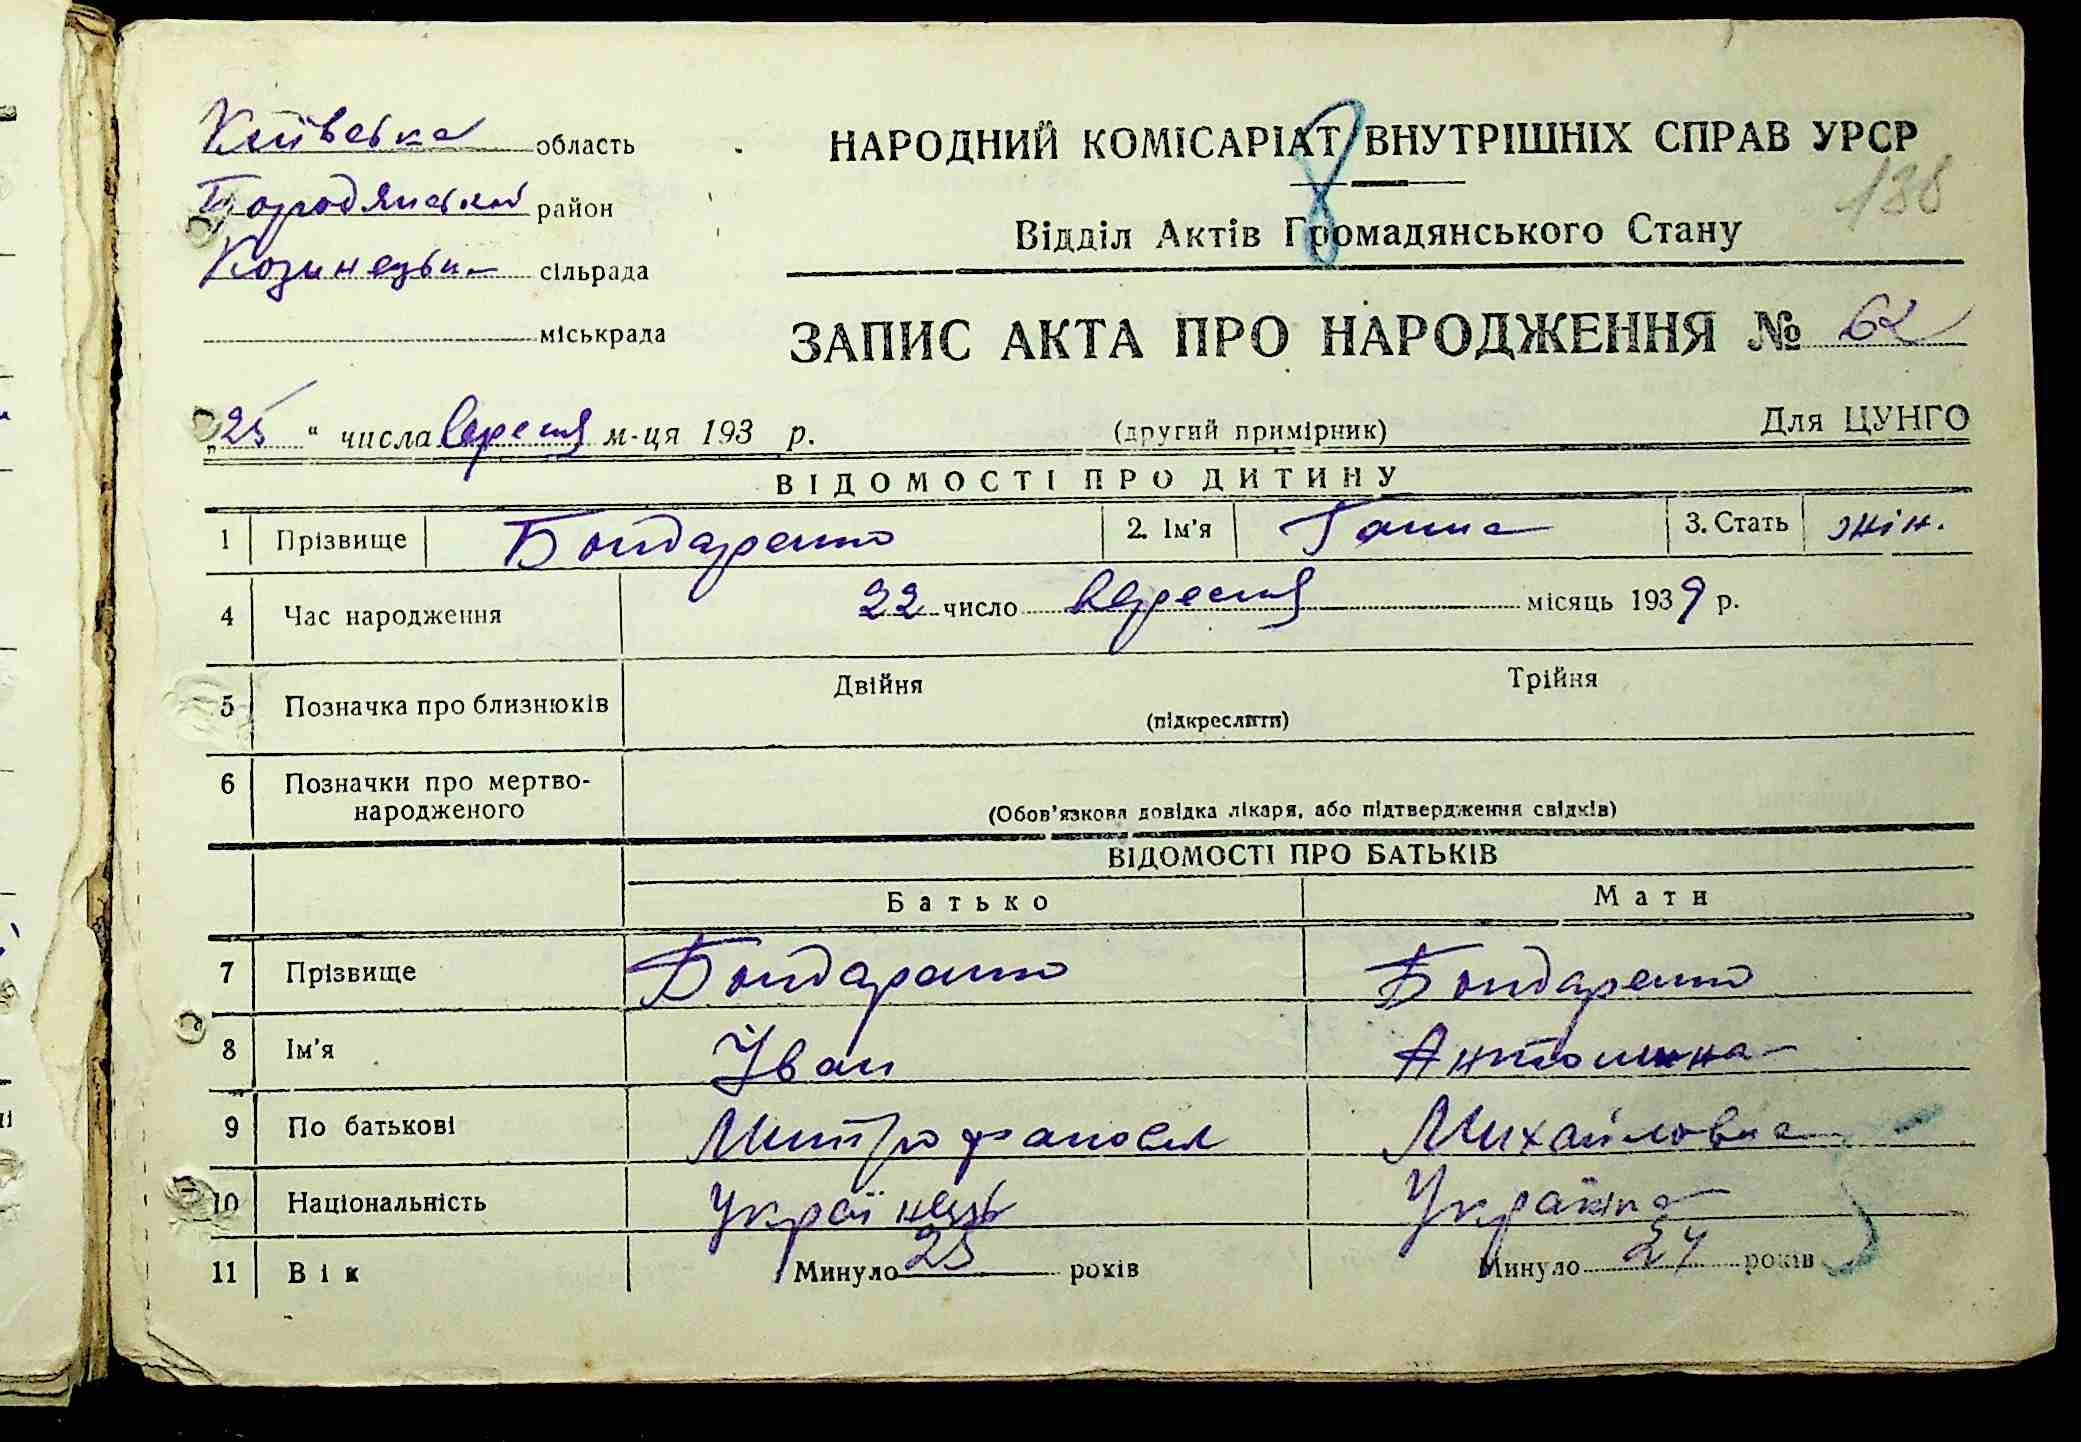 Київська область
Бородянський район
Козинецька сільрада
міськрада
НАРОДНИЙ КОМІСАРІАТ ВНУТРІШНІХ СПРАВ УРСР
138
Відділ Актів Громадянського Стану
ЗАПИС АКТА ПРО НАРОДЖЕННЯ № 62
„25“ числа вересня м-ця 193 р.
(другий примірник)
Для ЦУНГО
ВІДОМОСТІ ПРО ДИТИНУ
1 Прізвище Бондаренко 2. Ім'я Ганна 3. Стать жін.
4 Час народження 22 число вересня місяць 1939 р.
5 Позначка про близнюків Двійня Трійня
(підкреслити)
6 Позначки про мертво-
народженого
(Обов'язкова довідка лікаря, або підтвердження свідків)
ВІДОМОСТІ ПРО БАТЬКІВ
Батько Мати
7 Прізвище Бондаренко Бондаренко
8 Ім'я Іван Антонина
9 По батькові Митрофанов Михайловна
10 Національність Українець Українка
11 Вік Минуло 25 років Минуло 24 років